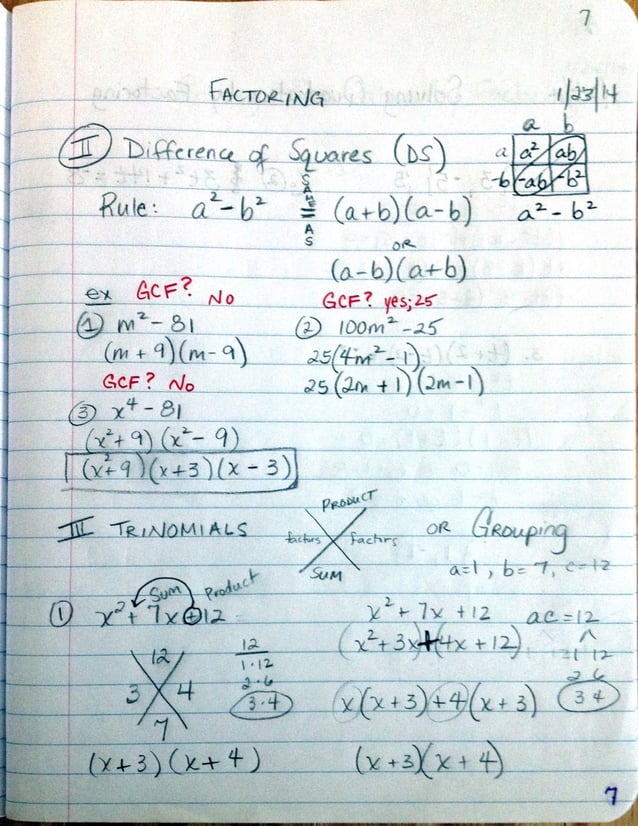 7
FACTORING
1/23/14
a b
II Difference of Squares (DS)
a a² ab
-b -ab -b²
Rule: a² - b² SAME = AS (a+b)(a-b)
a² - b²
OR
(a-b)(a+b)
ex GCF? No
GCF? yes; 25
① m² - 81
② 100m² - 25
(m + 9)(m - 9)
25(4m² - 1)
GCF? No
25(2m + 1)(2m - 1)
③ x⁴ - 81
(x² + 9)(x² - 9)
(x² + 9)(x + 3)(x - 3)
III TRINOMIALS
PRODUCT
factors factors
SUM
OR Grouping
a=1, b=7, c=12
Sum Product
① x² + 7x + 12
12
3 4
7
12
1·12
2·6
3·4
(x+3)(x+4)
x² + 7x + 12
ac = 12
(x² + 3x)+(4x + 12)
1 12
2 6
3 4
x(x+3)+4(x+3)
(x+3)(x+4)
7